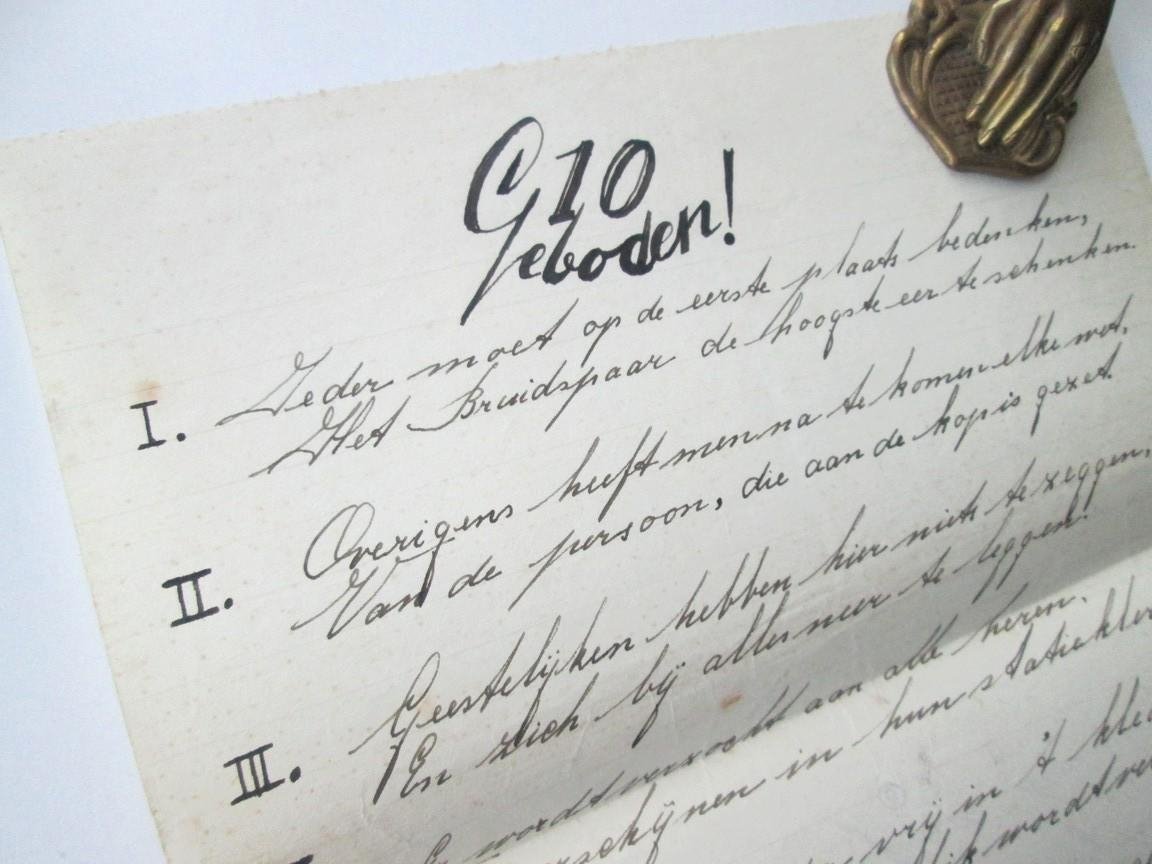 10
Geboden!
I. Ieder moet op de eerste plaats bedenken,
Het Bruidspaar de hoogste eer te schenken.
II. Overigens heeft men na te komen elke wet,
Van de persoon, die aan de kop is gezet.
III. Geestelijken hebben hier niets te zeggen,
En zich bij alles neer te leggen!
wordt verwacht aan alle heren,
in hun
vrij in 't
wordt